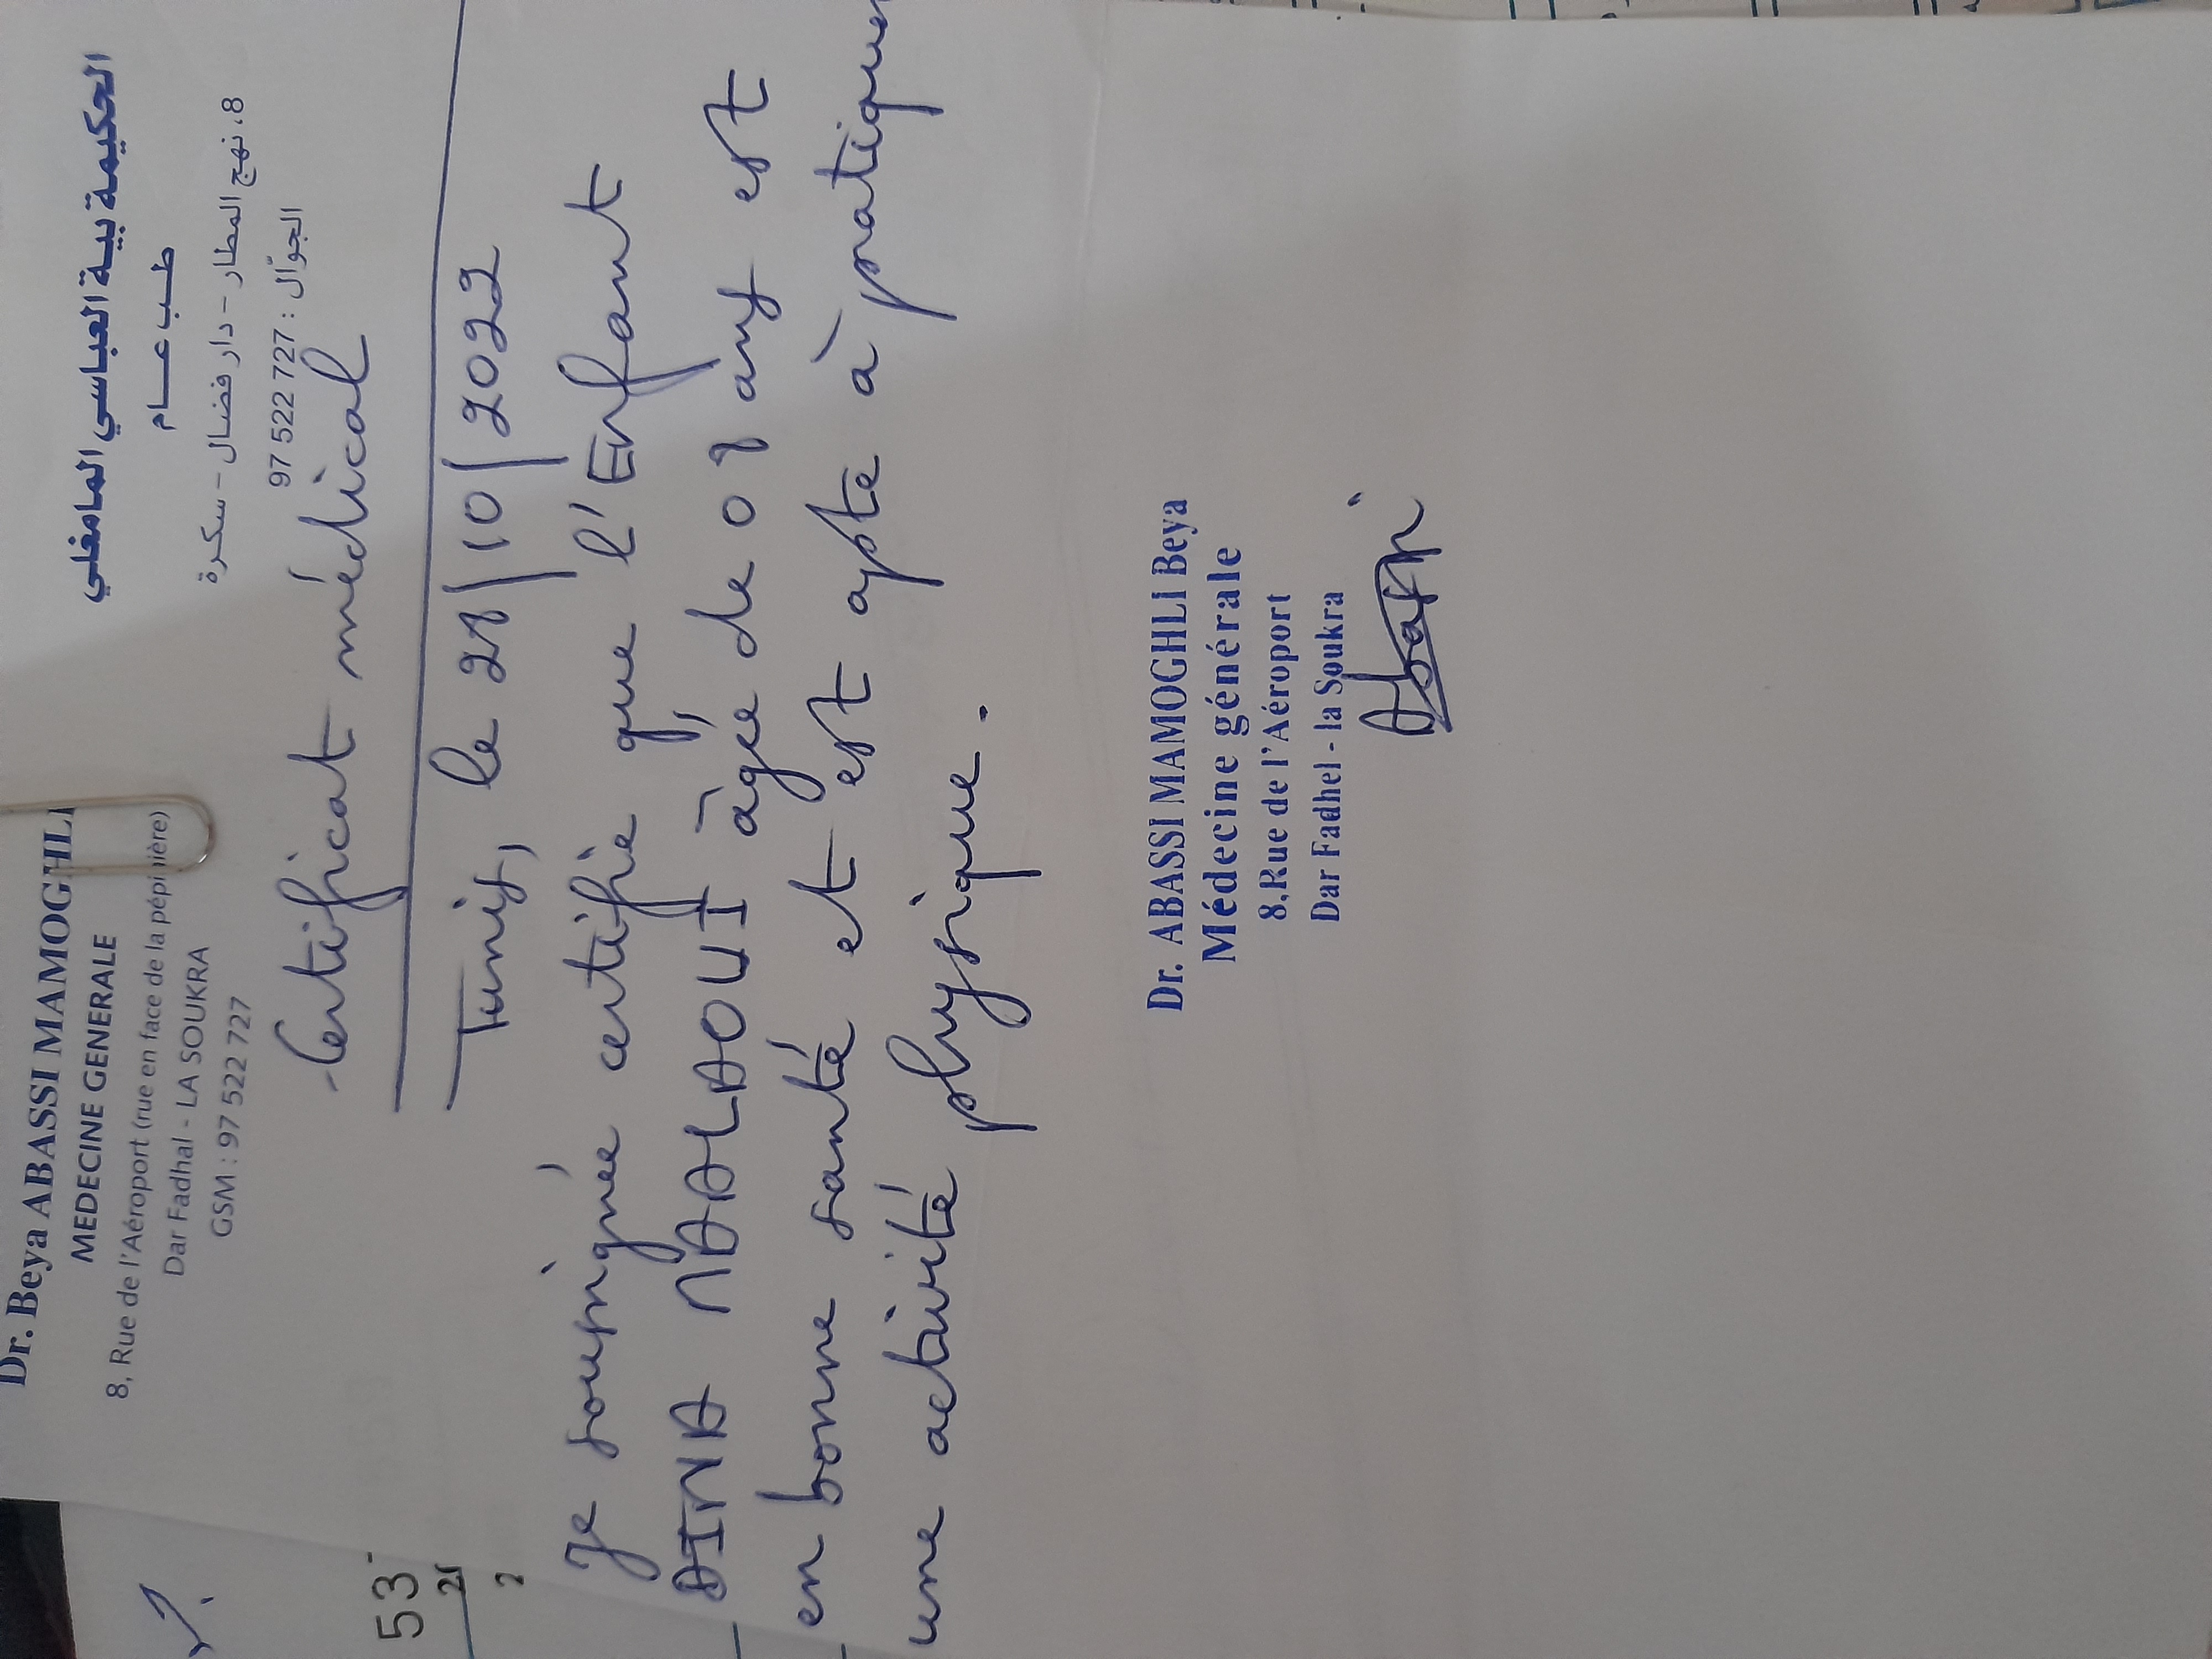 Dr. Beya ABASSI MAMOGHLI
MEDECINE GENERALE
8, Rue de l'Aéroport (rue en face de la pépinière)
Dar Fadhal - LA SOUKRA
GSM : 97 522 727
الحكيمة بية العباسي المامغلي
طب عام
8، نهج المطار - دار فضال - سكرة
الجوّال : 727 522 97
Certificat médical
Tunis, le 28/10/2022
Je soussignée certifie que l'Enfant
DINA MAALAOUI âgée de 08 ans est
en bonne santé et est apte à pratiquer
une activité physique.
Dr. ABASSI MAMOGHLI Beya
Médecine générale
8,Rue de l'Aéroport
Dar Fadhel - la Soukra
53